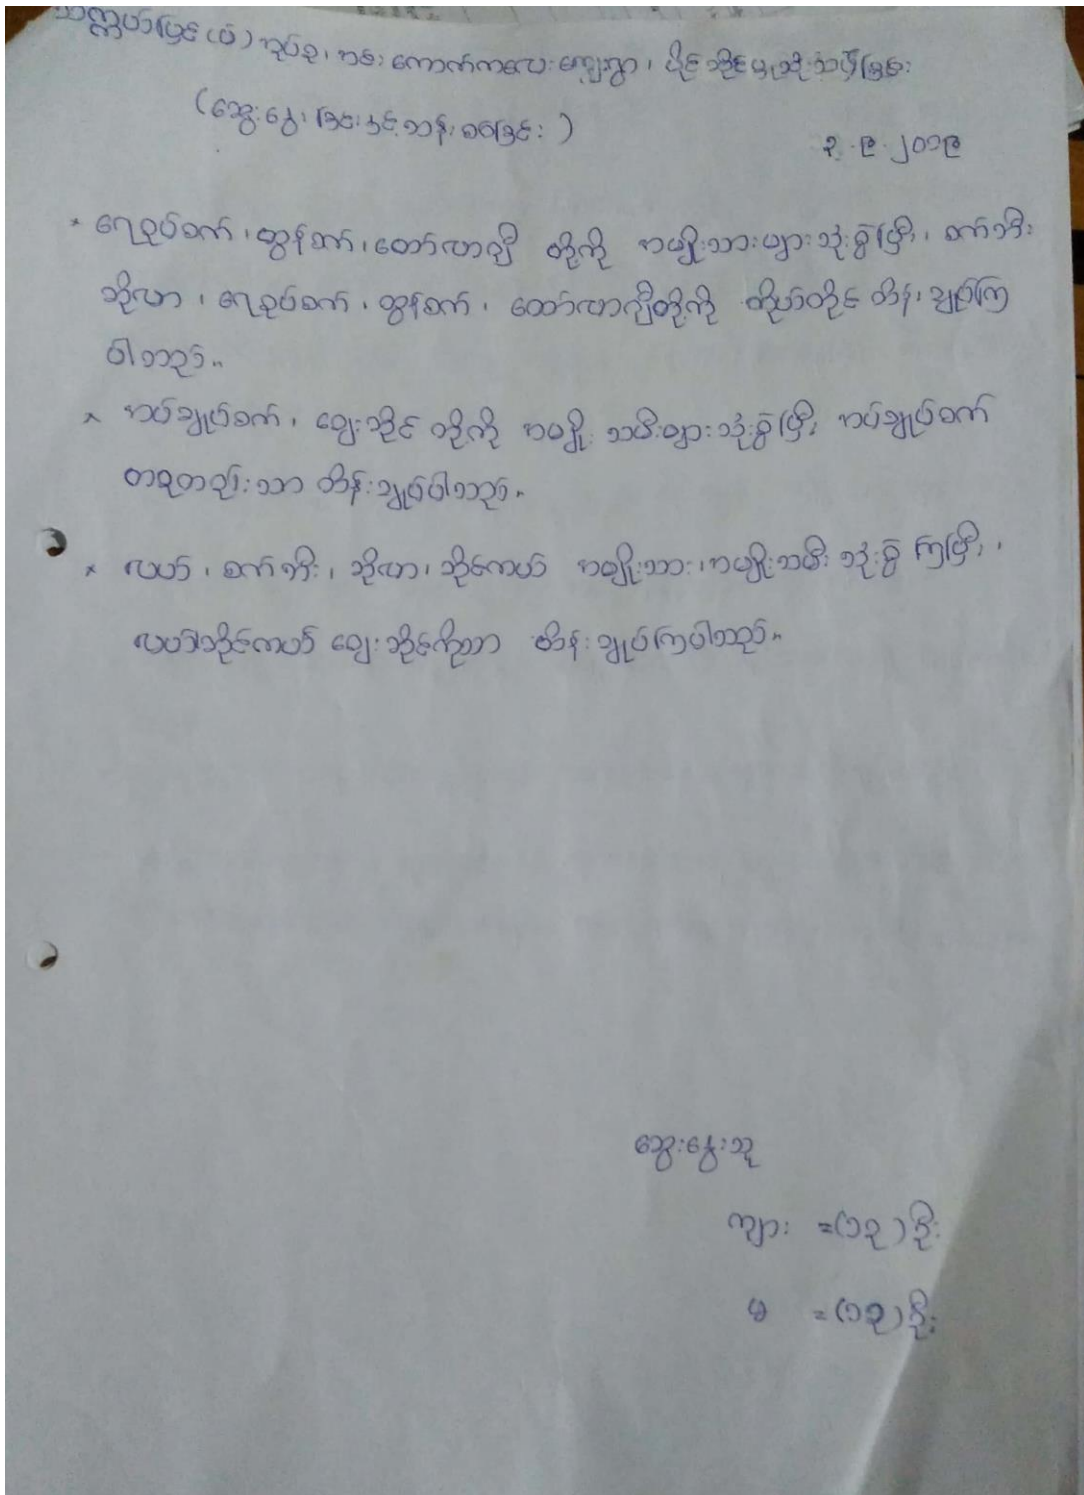 သက္ကယ်ပြင (ပ) အုပ်စု၊ အစးကောက်ကလေးကျေးရွာ၊ ပိုင်ဆိုင်မှုသုံးသပ်ခြင်း
(ဆွေးနွေးခြင်းနှင့်ဆန်းစစ်ခြင်း)
၃.၉.၂၀၁၉
* ရေစုပ်စက်၊ ထွန်စက်၊ ထော်လာဂျီ တို့ကို အမျိုးသားများသုံးစွဲပြီး၊ စက်ဘီး
ဆိုလာ၊ ရေစုပ်စက်၊ ထွန်စက်၊ ထော်လာဂျီတို့ကို ကိုယ်တိုင် ထိန်းချုပ်ကြ
ပါသည်။
* အပ်ချုပ်စက်၊ ဈေးဆိုင် တို့ကို အမျိုးသမီးများသုံးစွဲပြီး အပ်ချုပ်စက်
တစုတည်းသာ ထိန်းချုပ်ပါသည်။
* လယ်၊ စက်ဘီး၊ ဆိုလာ၊ ဆိုင်ကယ် အမျိုးသား၊ အမျိုးသမီး သုံးစွဲကြပြီး၊
လယ်၊ ဆိုင်ကယ် ဈေးဆိုင်ကိုသာ ထိန်းချုပ်ကြပါသည်။
ဆွေးနွေးသူ
ကျား =(၁၃)ဦး
မ =(၁၃)ဦး